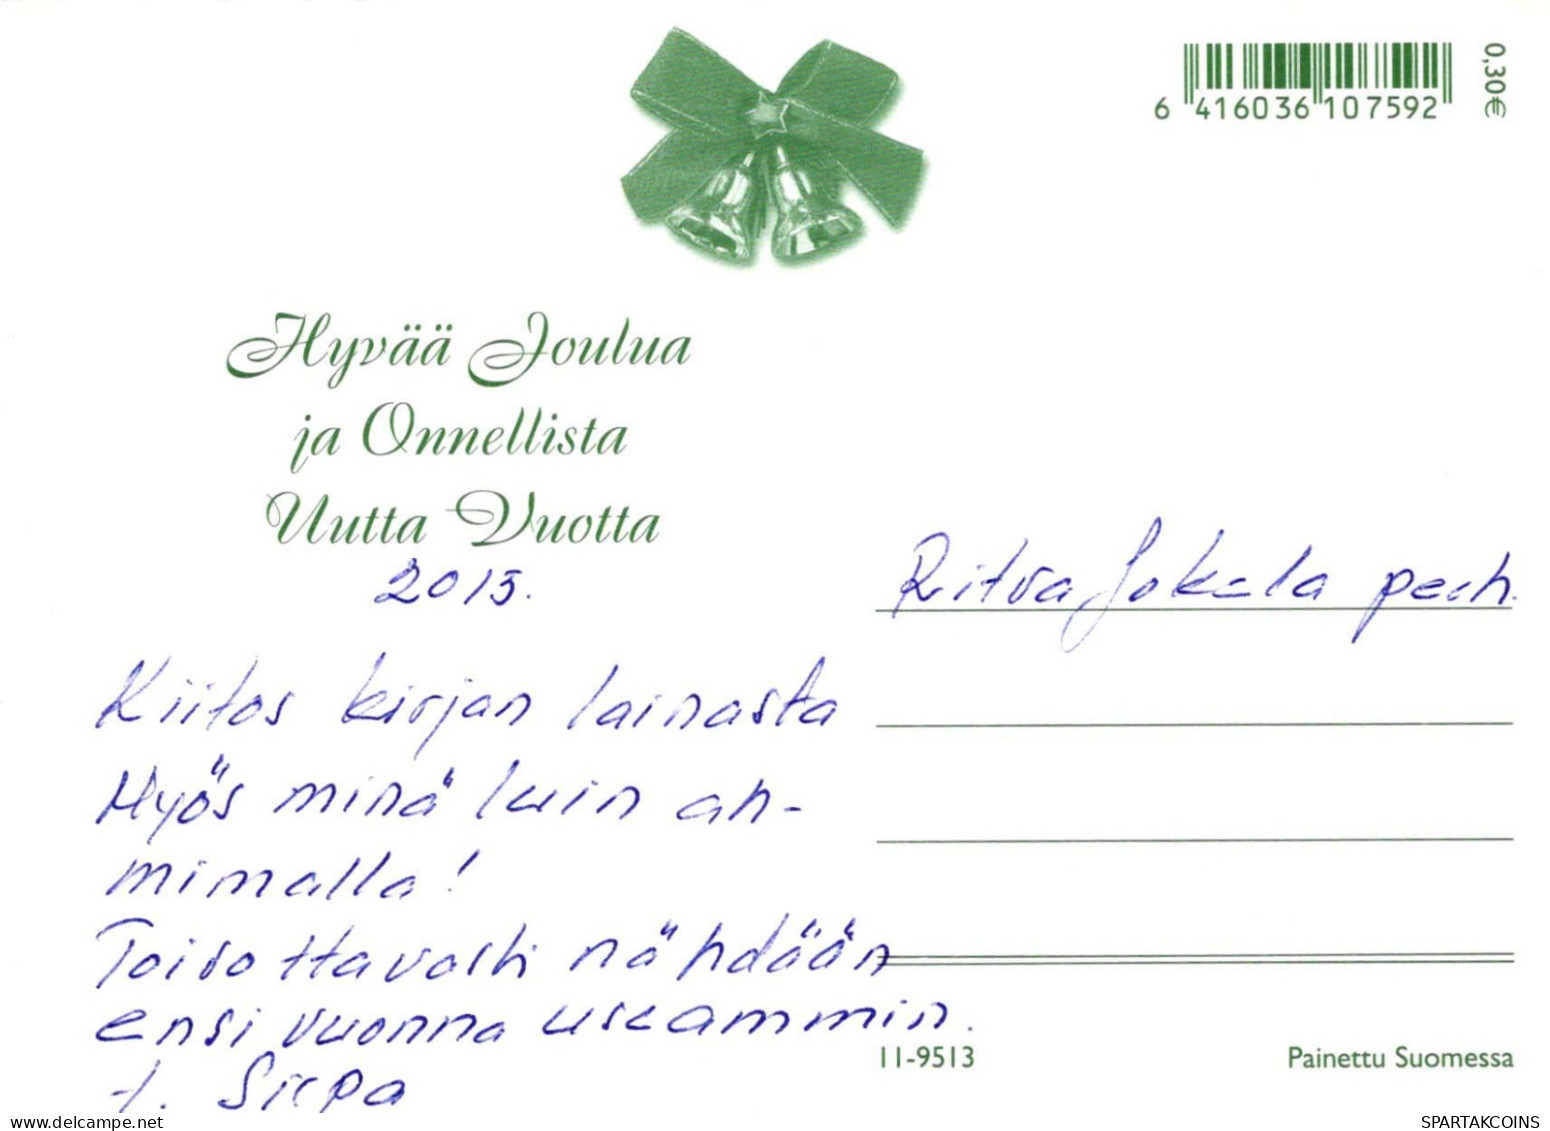 0,30€
6 416036 107592
Hyvää Joulua
ja Onnellista
Uutta Vuotta
2013.
Ritva Jokela perh.
Kiitos kirjan lainasta
Myös minä luin ah-
mimalla!
Toivottavasti nähdään
ensi vuonna useammin.
t. Sirpa
11-9513
Painettu Suomessa
delcampe.net
SPARTAKCOINS